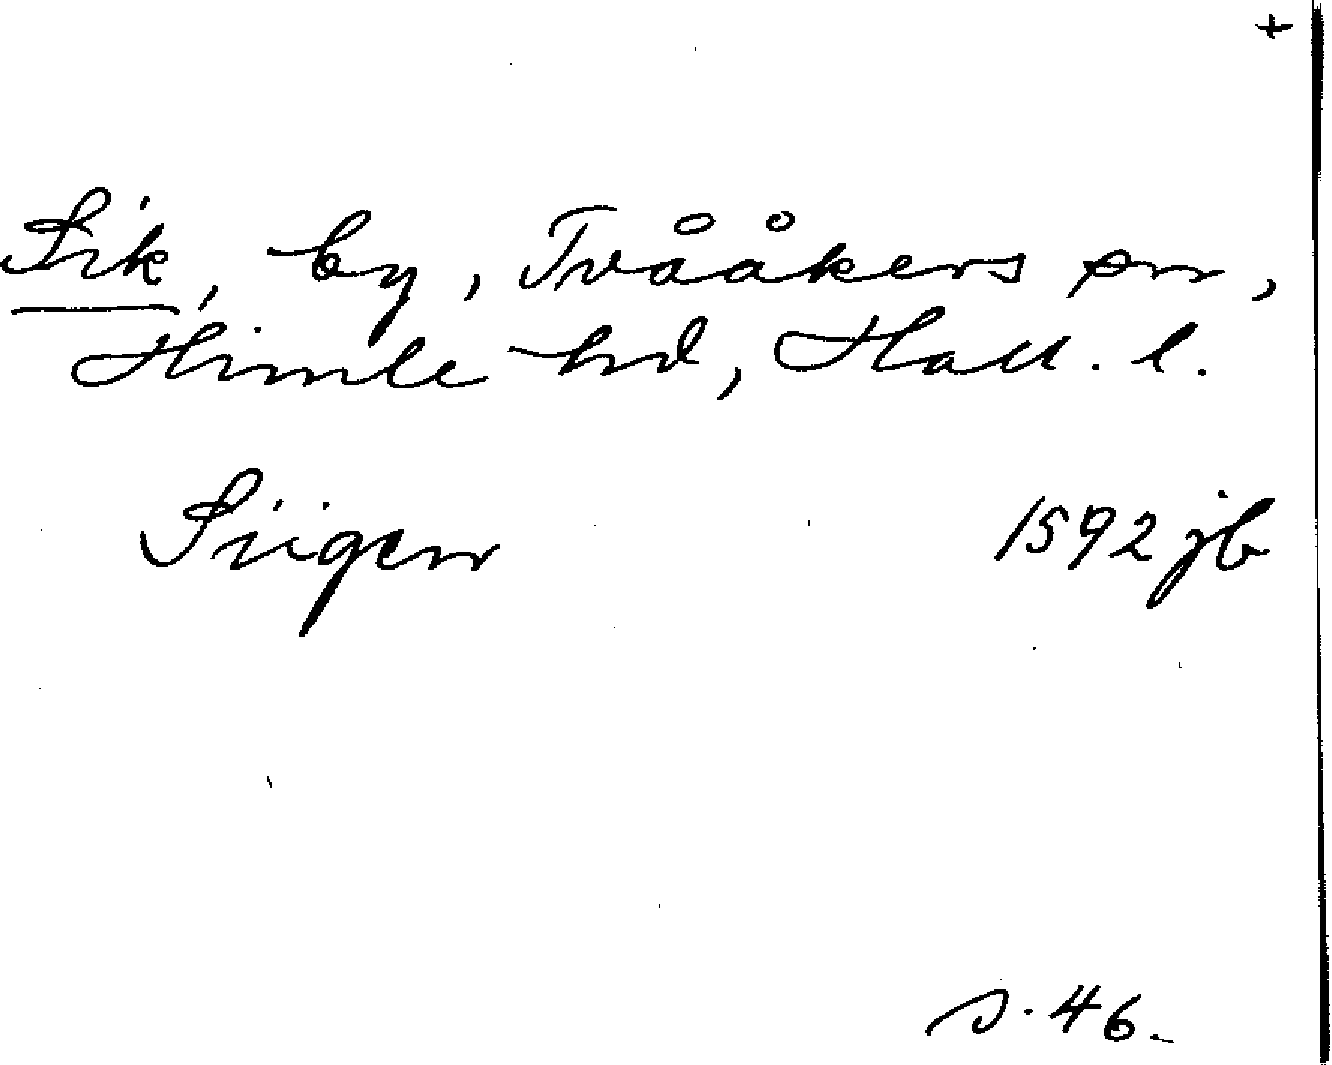 +
Sik, by, Tvååkers sn,
Himle hd, Hall. l.
Siigen 1592 jb
s. 46.